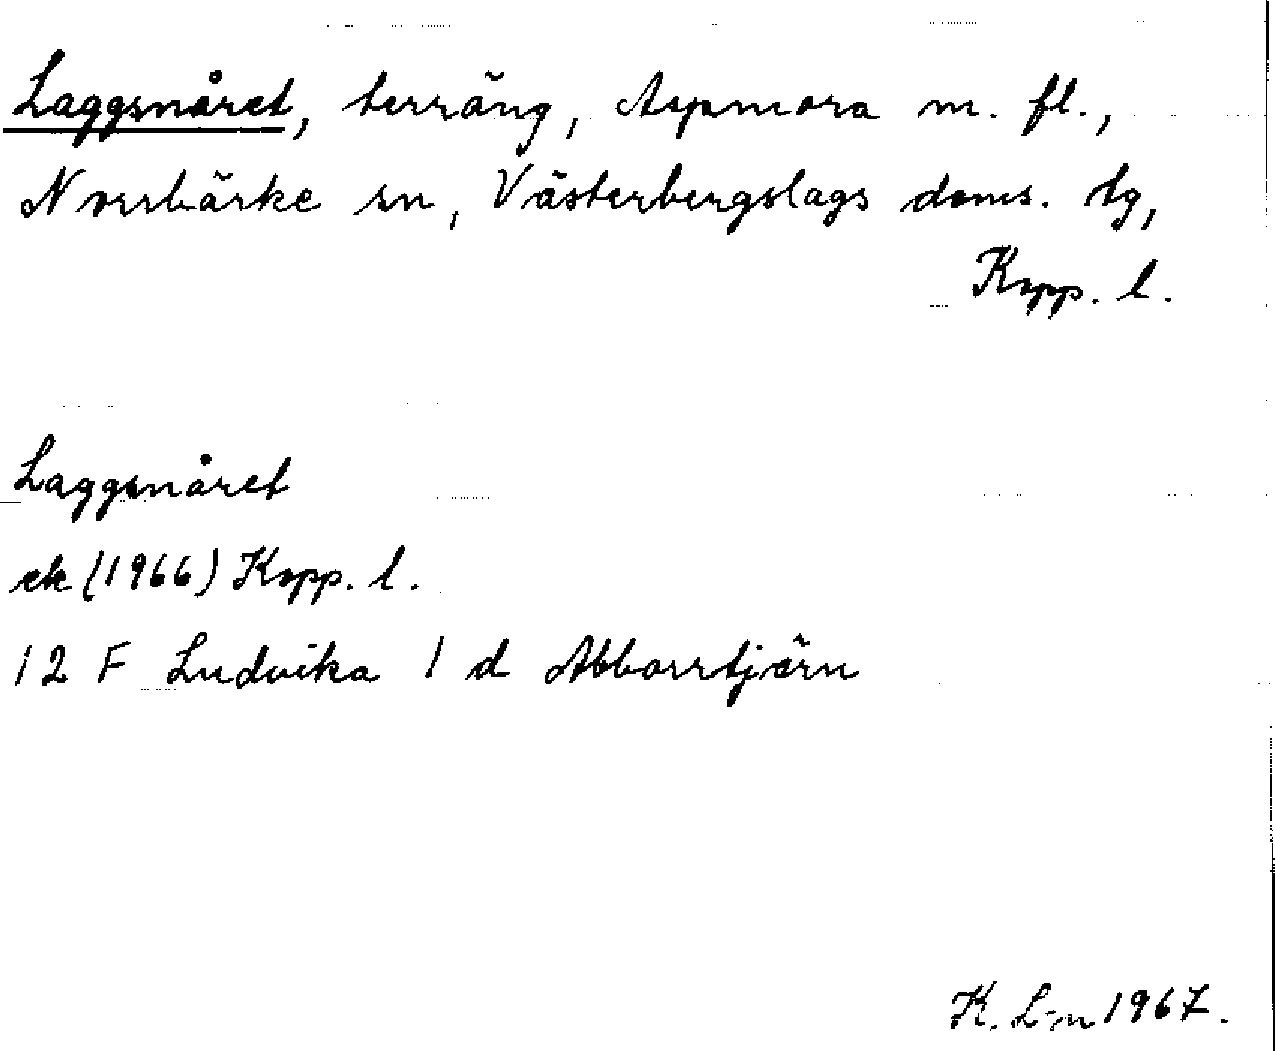 Laggsnåret, terräng, Aspmora m. fl.,
Norrbärke sn, Västerbergslags doms. tg,
Kopp. l.
Laggsnåret
ek (1966) Kopp. l.
12 F Ludvika 1 d Abborrtjärn
K. L-n 1967.